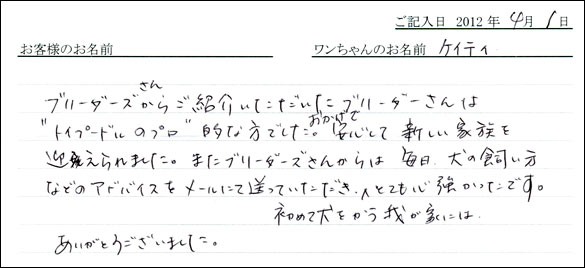 ご記入日 2012年 4月 1日
お客様のお名前 ワンちゃんのお名前 ケイティ
ブリーダーズさんからご紹介いただいたブリーダーさんは
"トイプードルのプロ"的な方でした。おかげで安心して新しい家族を
迎えられました。またブリーダーズさんからは毎日、犬の飼い方
などのアドバイスをメールにて送っていただき、とても心強かったです。
初めて犬をかう我が家には
ありがとうございました。